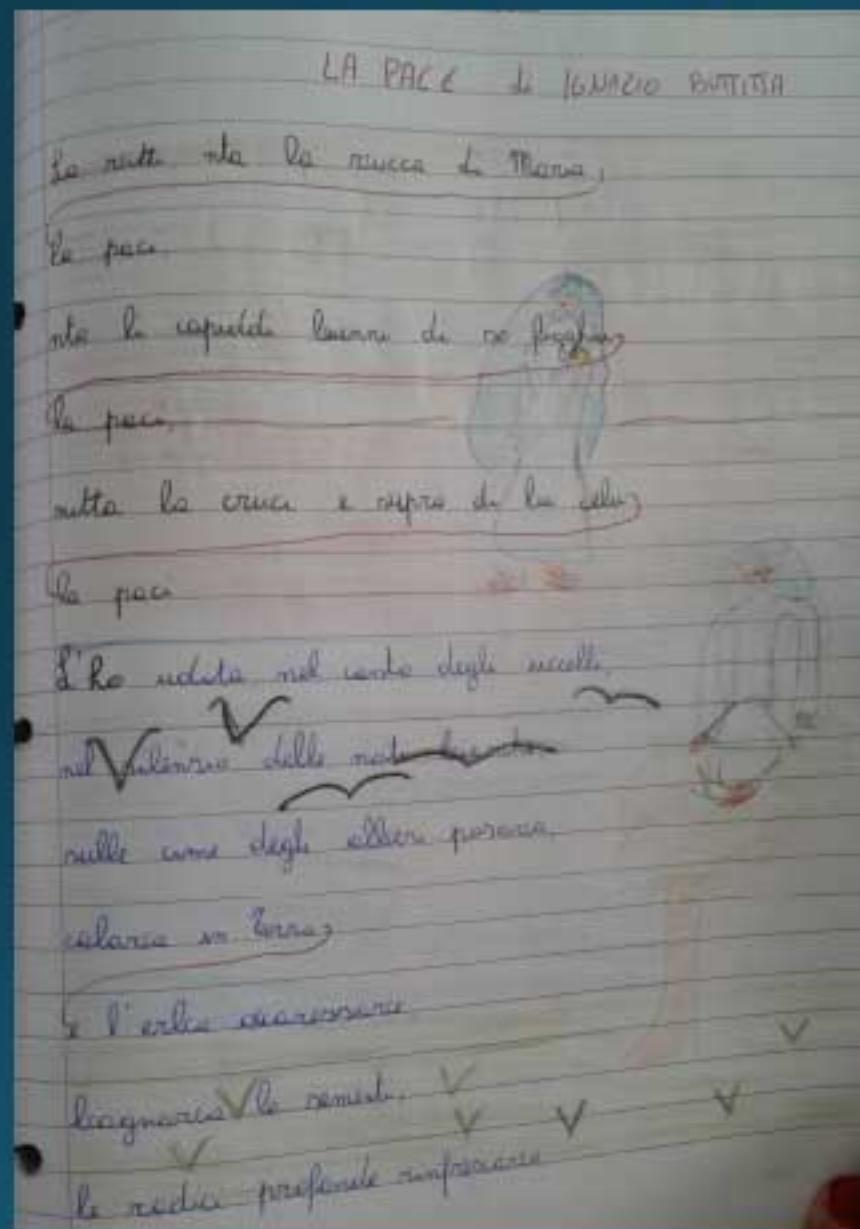 LA PACE di IGNAZIO BUTTITTA
La sutti nta la vucca di Maria,
la paci.
nta li capiddi biunni di so figghiu,
la paci,
sutta la cruci e supra di lu celu,
la paci
L'ho udita nel canto degli uccelli,
nel silenzio delle
sulle cime degli alberi posarsi,
calarsi in Terra,
e l'erba accarezzare
bagnarsi le sementi,
le radici profonde rinfrescarsi